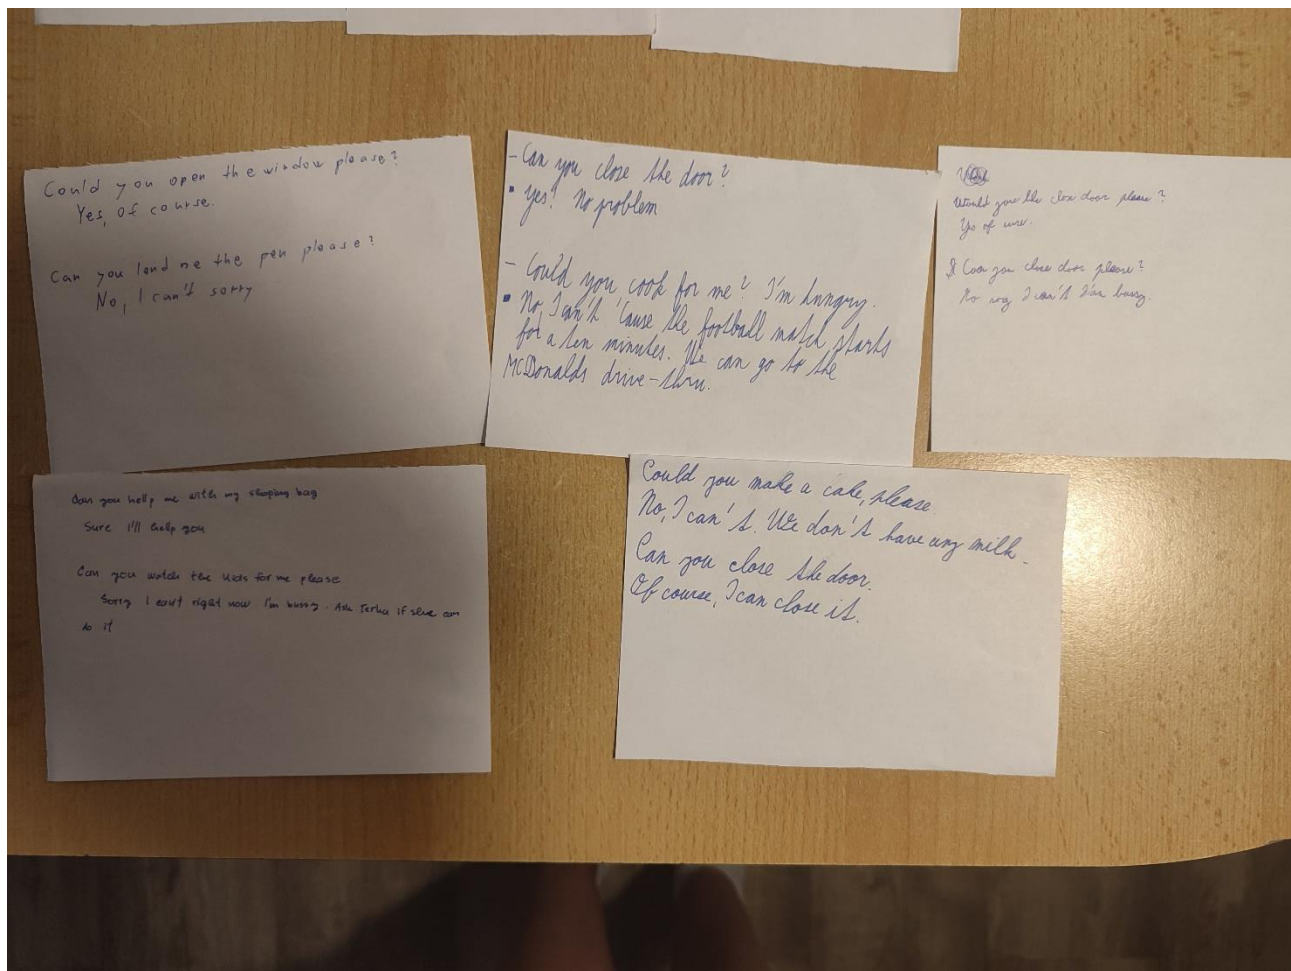 Could you open the window please?
Yes, Of course.
Can you lend me the pen please?
No, I can't sorry
- Can you close the door?
• yes! No problem
- Could you cook for me? I'm hungry.
• No, I can't 'cause the football match starts
for a ten minutes. We can go to the
McDonalds drive-thru.
Would you like close door please?
Yes of
Can you close door please?
No I can't I'm bussy.
Can you help me with my shoping bag
Sure I'll help you
Can you watch the kids for me please
Sorry I can't right now I'm bussy. Ask Terka if she can
do it
Could you make a cake, please.
No, I can't. We don't have any milk.
Can you close the door.
Of course, I can close it.